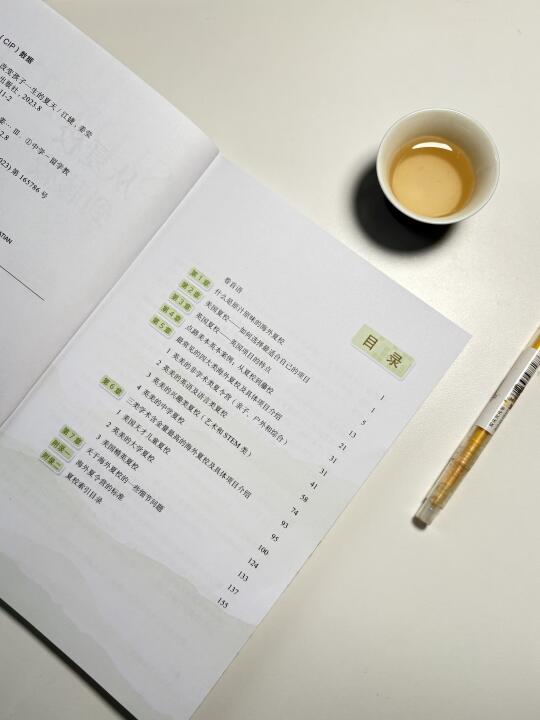 （CIP）数据
改变孩子一生的夏天 / 江婕，姜雯
出版社，2023.8
11-2
姜… Ⅲ. ①中学－留学教
2.8
023）第 165786 号
STIAN
目 录
卷首语 1
第1章 什么是原汁原味的海外夏校 1
第2章 美国夏校——如何选择最适合自己的项目 5
第3章 英国夏校——英国项目的特点 13
第4章 点路美本英本案例，从夏校到藤校 21
第5章 最常见的四大类海外夏校及具体项目介绍 31
1 英美的非学术类夏令营（亲子、户外和综合） 31
2 英美的英语及语言类夏校 41
3 英美的兴趣类夏校（艺术和STEM类） 58
4 英美的中学夏校 74
第6章 三类学术含金量最高的海外夏校及具体项目介绍 93
1 美国天才儿童夏校 95
2 英美的大学夏校 100
3 美国精英夏校 124
第7章 关于海外夏校的一些细节问题 133
附录一 海外夏令营的标准 137
附录二 夏校索引目录 155